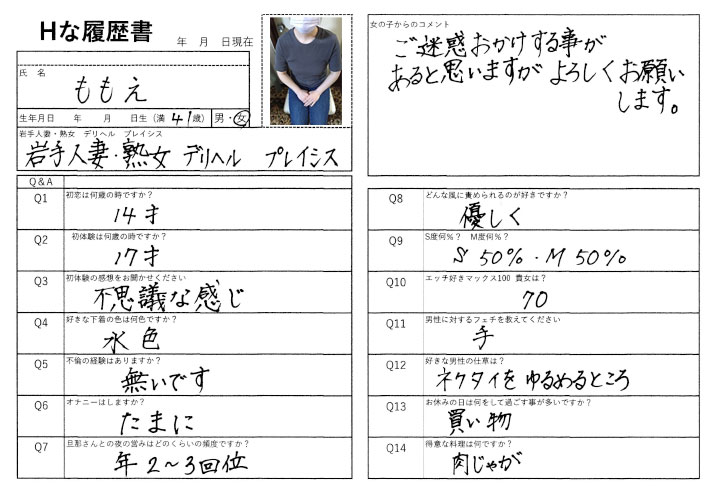 Hな履歴書
年 月 日現在
氏 名
ももえ
生年月日 年 月 日生（満 41歳） 男・女
岩手人妻・熟女 デリヘル プレイシス
岩手人妻・熟女 デリヘル プレイシス
Q&A
Q1 初恋は何歳の時ですか？
14才
Q2 初体験は何歳の時ですか？
17才
Q3 初体験の感想をお聞かせください
不思議な感じ
Q4 好きな下着の色は何色ですか？
水色
Q5 不倫の経験はありますか？
無いです
Q6 オナニーはしますか？
たまに
Q7 旦那さんとの夜の営みはどのくらいの頻度ですか？
年2～3回位
女の子からのコメント
ご迷惑おかけする事が
あると思いますが よろしくお願い
します。
Q8 どんな風に責められるのが好きですか？
優しく
Q9 S度何%？ M度何%？
S 50%・M 50%
Q10 エッチ好きマックス100 貴女は？
70
Q11 男性に対するフェチを教えてください
手
Q12 好きな男性の仕草は？
ネクタイを ゆるめるところ
Q13 お休みの日は何をして過ごす事が多いですか？
買い物
Q14 得意な料理は何ですか？
肉じゃが